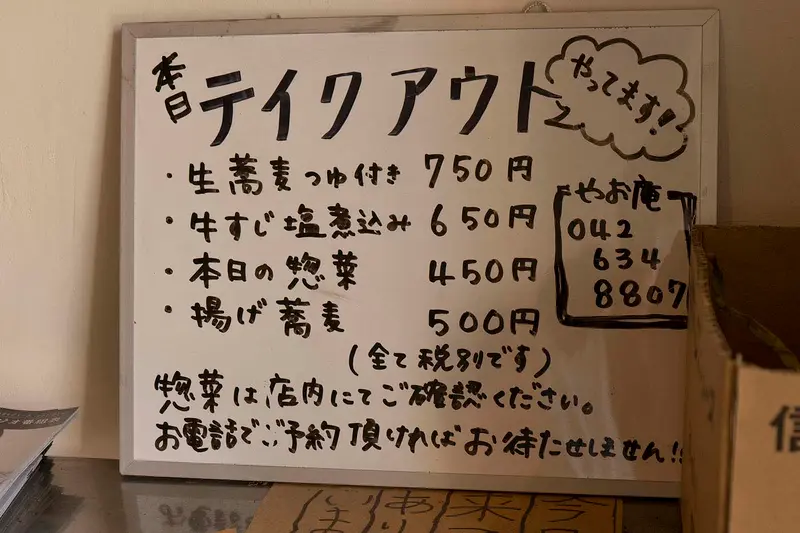 本日 テイクアウト
やってます!
・生蕎麦つゆ付き 750円
・牛すじ塩煮込み 650円
・本日の惣菜 450円
・揚げ蕎麦 500円
(全て税別です)
やお庵
042
634
8807
惣菜は店内にてご確認ください。
お電話でご予約頂ければお待たせしません!!
信